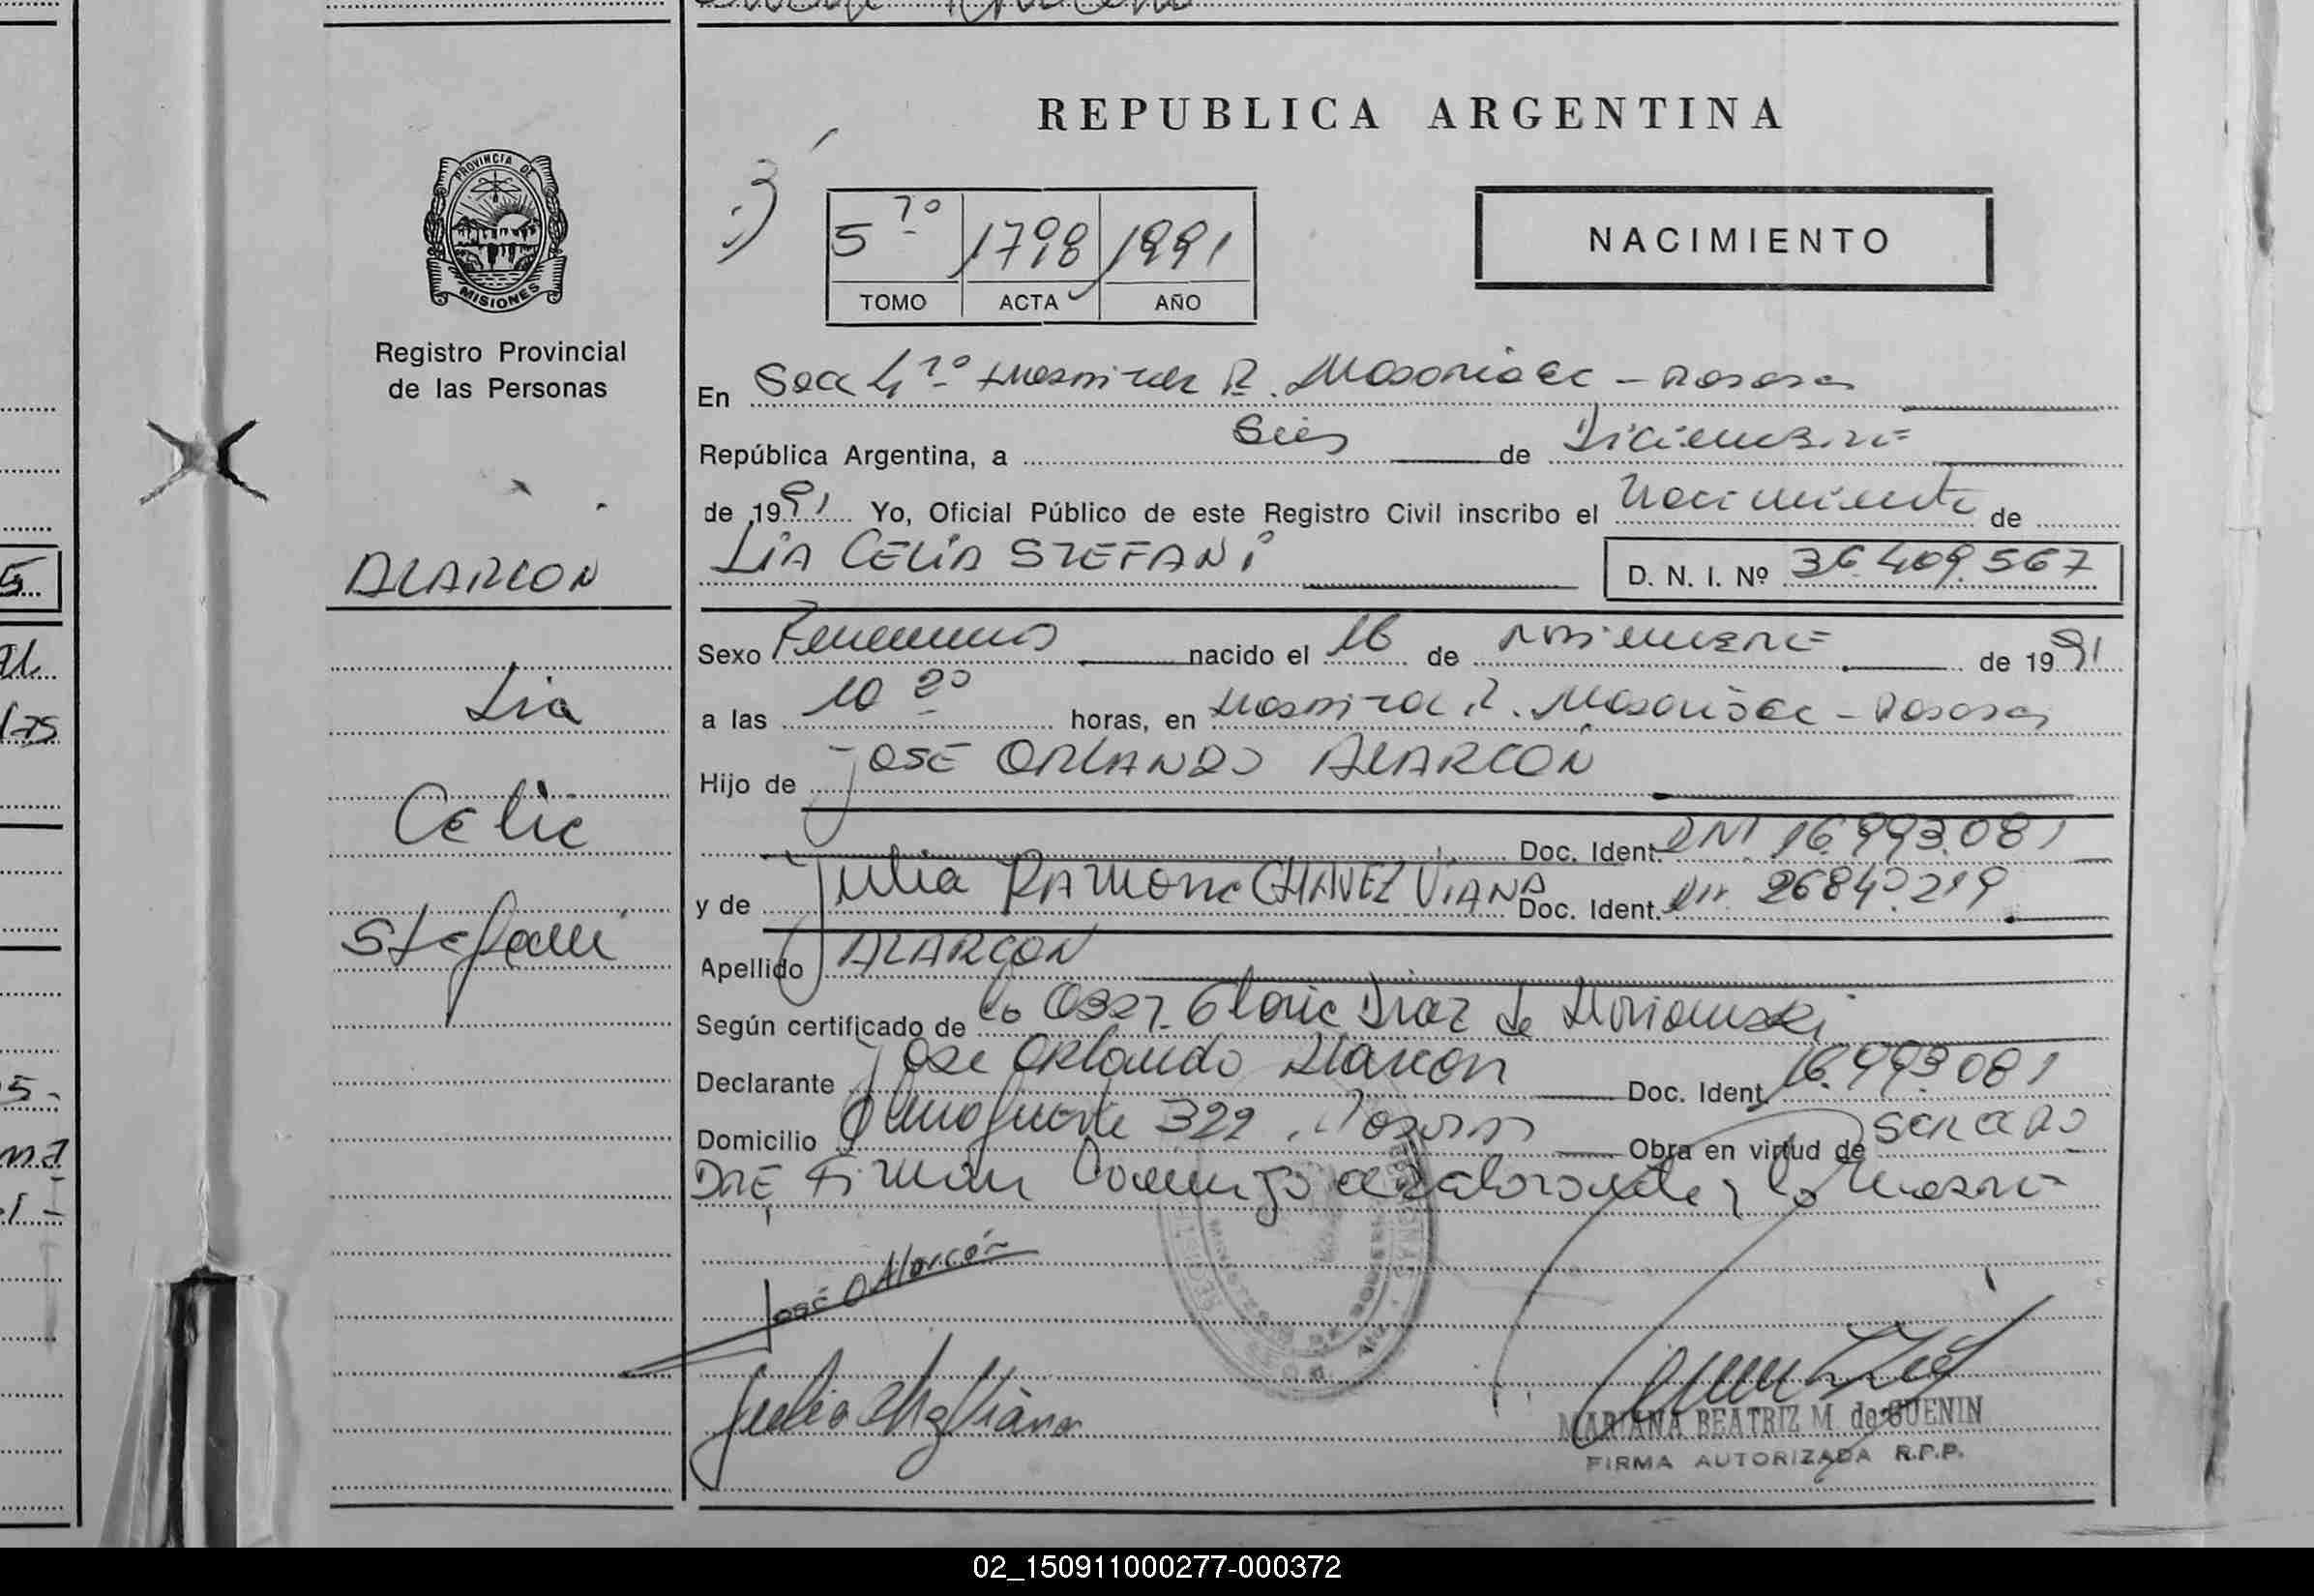 REPUBLICA ARGENTINA
PROVINCIA DE
MISIONES
Registro Provincial
de las Personas
5 7º 1798 1991
TOMO ACTA AÑO
NACIMIENTO
En Sec 4 - Posadas
República Argentina, a de Diciembre
de 1991 Yo, Oficial Público de este Registro Civil inscribo el Nacimiento de
LIA CELIA STEFANI D. N. I. Nº 36.409.567
ALARCON
Lia
Celia
Stefani
Sexo Femenino nacido el 16 de Noviembre de 1991
a las 10 20 horas, en - Posadas
Hijo de JOSE ORLANDO ALARCON
Doc. Ident. DNI 16.993.081
y de Julia Ramona CHAVEZ VIANA Doc. Ident. 26840.219
Apellido ALARCON
Según certificado de la Obst. Diaz de
Declarante Jose Orlando Alarcon Doc. Ident. 16.993.081
Domicilio Almafuerte 322 Posadas Obra en virtud de
Firman el y la Madre
José O Alarcón
MARIANA BEATRIZ M. de GUENIN
FIRMA AUTORIZADA R.P.P.
02_150911000277-000372